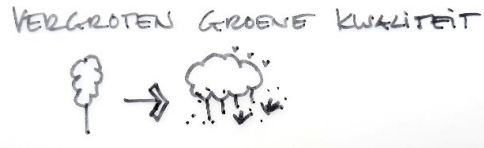 VERGROTEN GROENE KWALITEIT